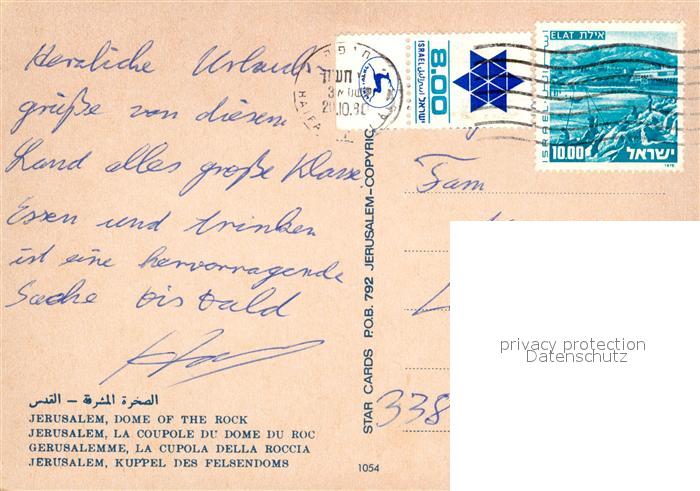 Herzliche Urlaubs
grüße von diesem
Land alles große Klasse
Essen und trinken
ist eine hervorragende
Sache bis bald
الصخرة المشرفة – القدس
JERUSALEM, DOME OF THE ROCK
JERUSALEM, LA COUPOLE DU DOME DU ROC
GERUSALEMME, LA CUPOLA DELLA ROCCIA
JERUSALEM, KUPPEL DES FELSENDOMS
STAR CARDS P.O.B. 792 JERUSALEM-COPYRIC
1054
8.00
ISRAEL اسرائيل ישראל
ELAT אילת
ISRAEL اسرائيل
10.00 ישראל
1976
HAIFA
Fam
338
privacy protection
Datenschutz